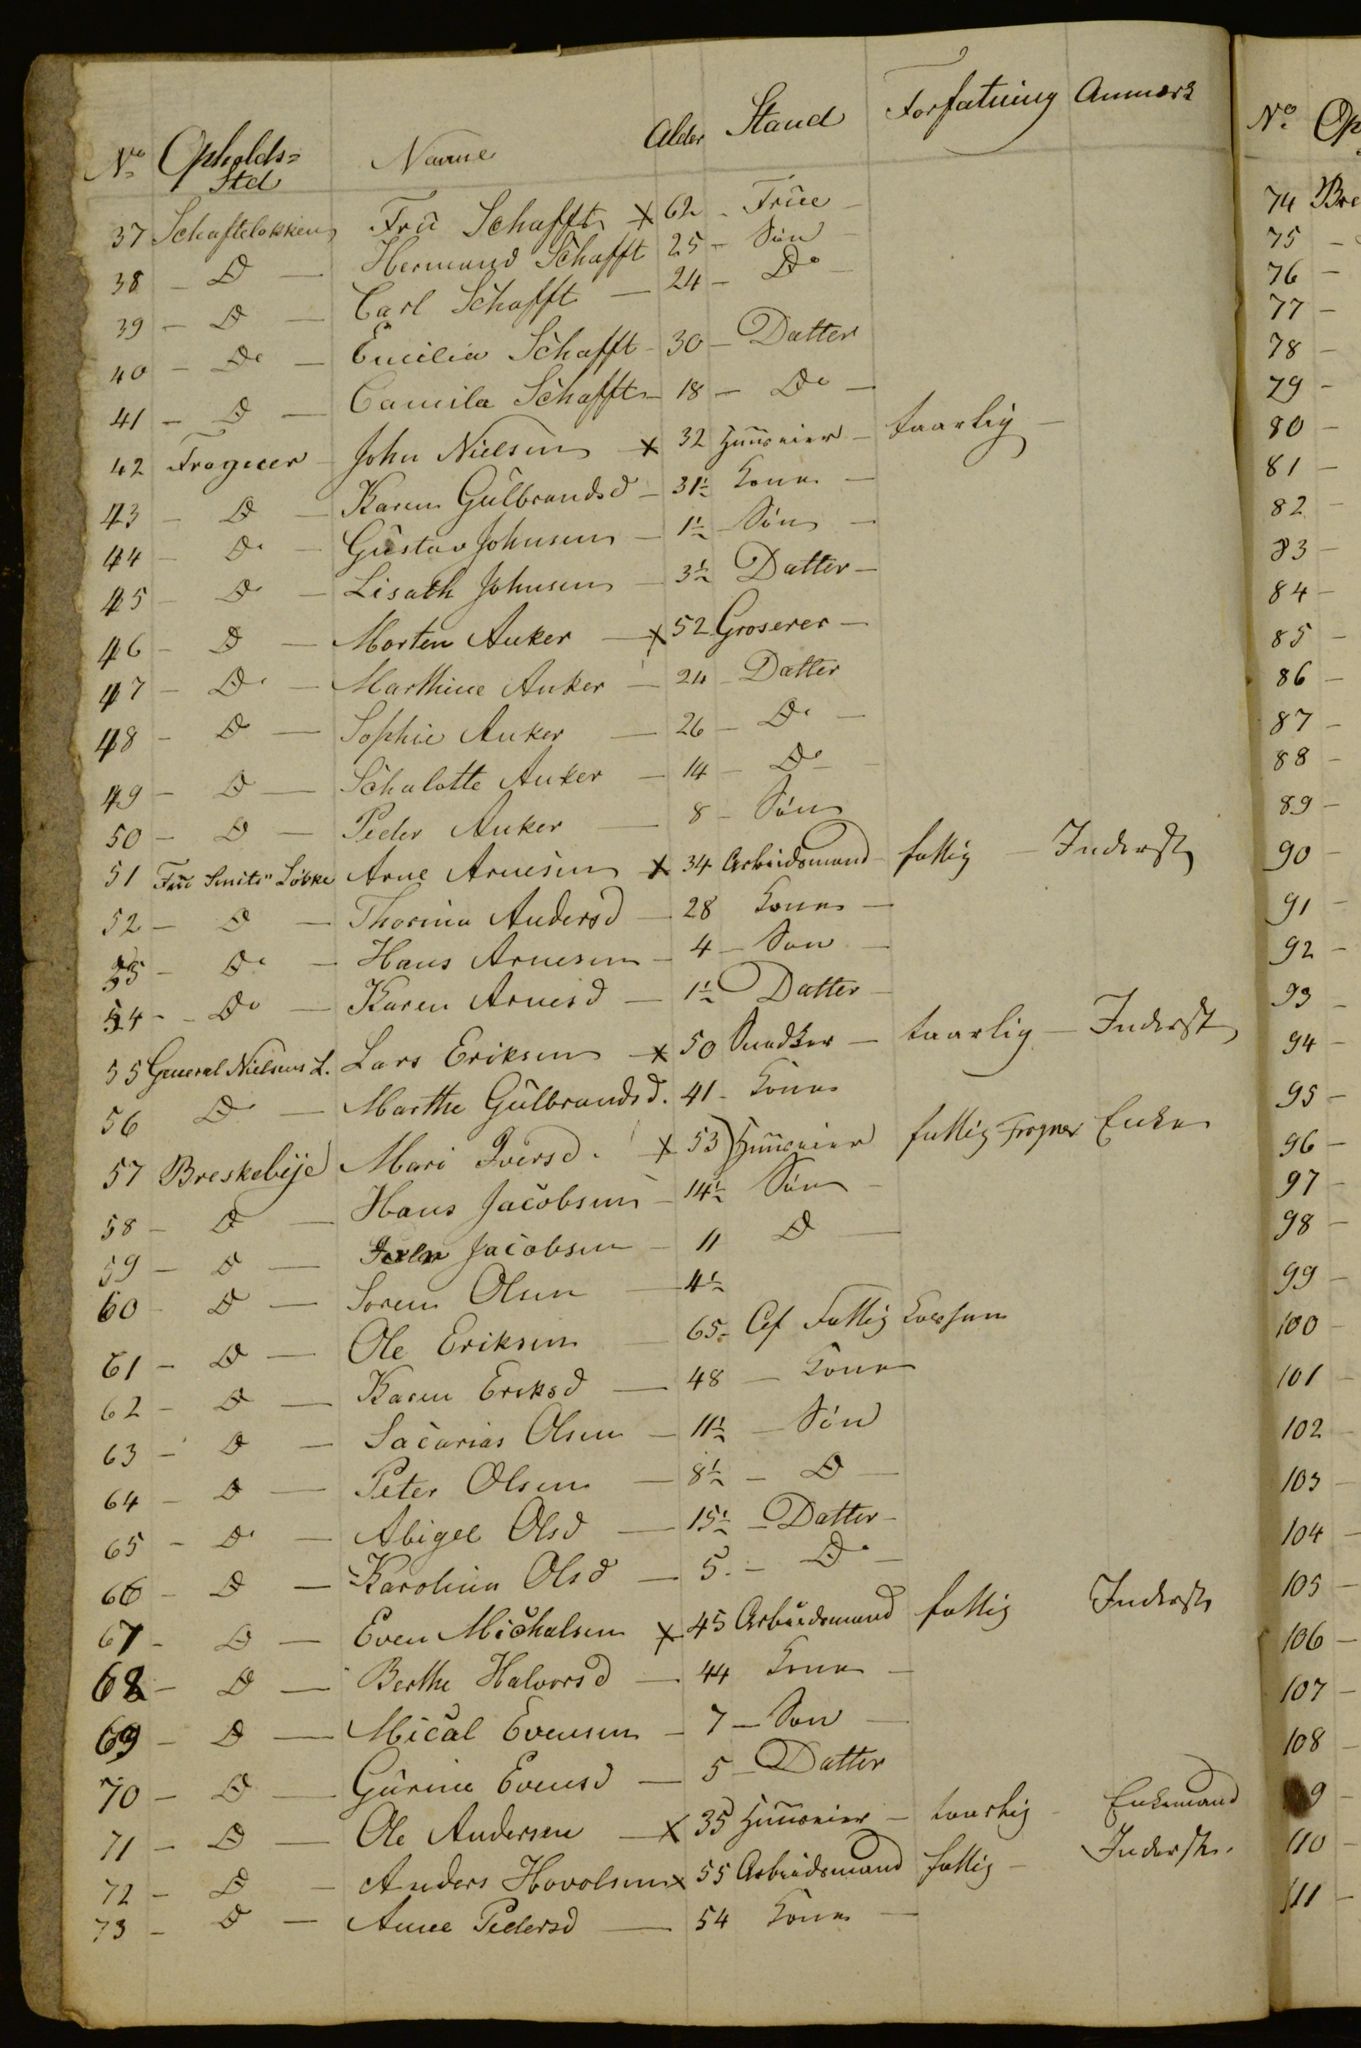 No Opholds= Navne Alder Stand Forfatning Anmærk
Sted
37 Schafteløkken Frü Schafft x 62 - Früe -
38 - Do - Hermand Schafft 25 - Søn -
39 - Do - Carl Schafft - 24 - Do -
40 - Do - Emilia Schafft - 30 - Datter
41 - Do - Camila Schafft - 18 - Do -
42 Frogner - John Nielsen x 32 Huuseier - taarlig -
43 - Do - Karen Gülbrandsd - 31½ Kone -
44 - Do - Güstav Johnsen - 1½ - Søn -
45 - Do - Lisath Johnsen - 3½ Datter -
46 - Do - Morten Anker - x 52 Groserer -
47 - Do - Marthine Anker - 24 - Datter
48 - Do - Sophie Anker - 26 - Do -
49 - Do - Schalotte Anker - 14 - Do -
50 - Do - Peder Anker - 8 - Søn
51 Früe Smits" Løkke Arne Arnesen x 34 Arbeidsmand - fattig - Inderst
52 - Do - Thorina Andersd - 28 Kone -
53 - Do - Hans Arnesen - 4 - Søn -
54 - Do - Karen Arnesd - 1½ Datter -
55 General Nielsens L. Lars Eriksen - x 50 Snedker - taarlig - Inderst
56 Do - Marthe Gülbrandsd. 41 - Kone
57 Breskebÿe Mari Iversd. x 53 Huuseier fattig Frogner Enke
58 - Do - Hans Jacobsen - 14½ Søn -
59 - Do - Jacobsen - 11 Do -
60 - Do - Soren Olsen - 4½
61 - Do - Ole Eriksen - 65 - Af Fattig Kassen
62 - Do - Karen Eriksd - 48 - Kone
63 - Do - Sacarias Olsen - 11½ - Søn
64 - Do - Peter Olsen - 8½ - Do -
65 - Do - Abigel Olsd - 15½ - Datter -
66 - Do - Karolina Olsd - 5. - Do -
67 - Do - Even Michalsen x 45 Arbeidsmand fattig Inderst
68 - Do - Berthe Halvorsd - 44 Kone -
69 - Do - Mical Evensen - 7 - Søn -
70 - Do - Gürine Evensd - 5 - Datter
71 - Do - Ole Andersen - x 35 Huuseier - taarlig - Enkemand
72 - Do - Anders Hovolsen x 55 Arbeidsmand fattig - Inderst.
73 - Do - Anne Pedersd - 54 Kone -
No Op
74 Bre
75 -
76 -
77 -
78 -
79 -
80 -
81 -
82 -
83 -
84 -
85 -
86 -
87 -
88 -
89 -
90 -
91 -
92 -
93 -
94 -
95 -
96 -
97 -
98 -
99 -
100 -
101 -
102 -
103 -
104 -
105 -
106 -
107 -
108 -
9 -
110 -
111 -